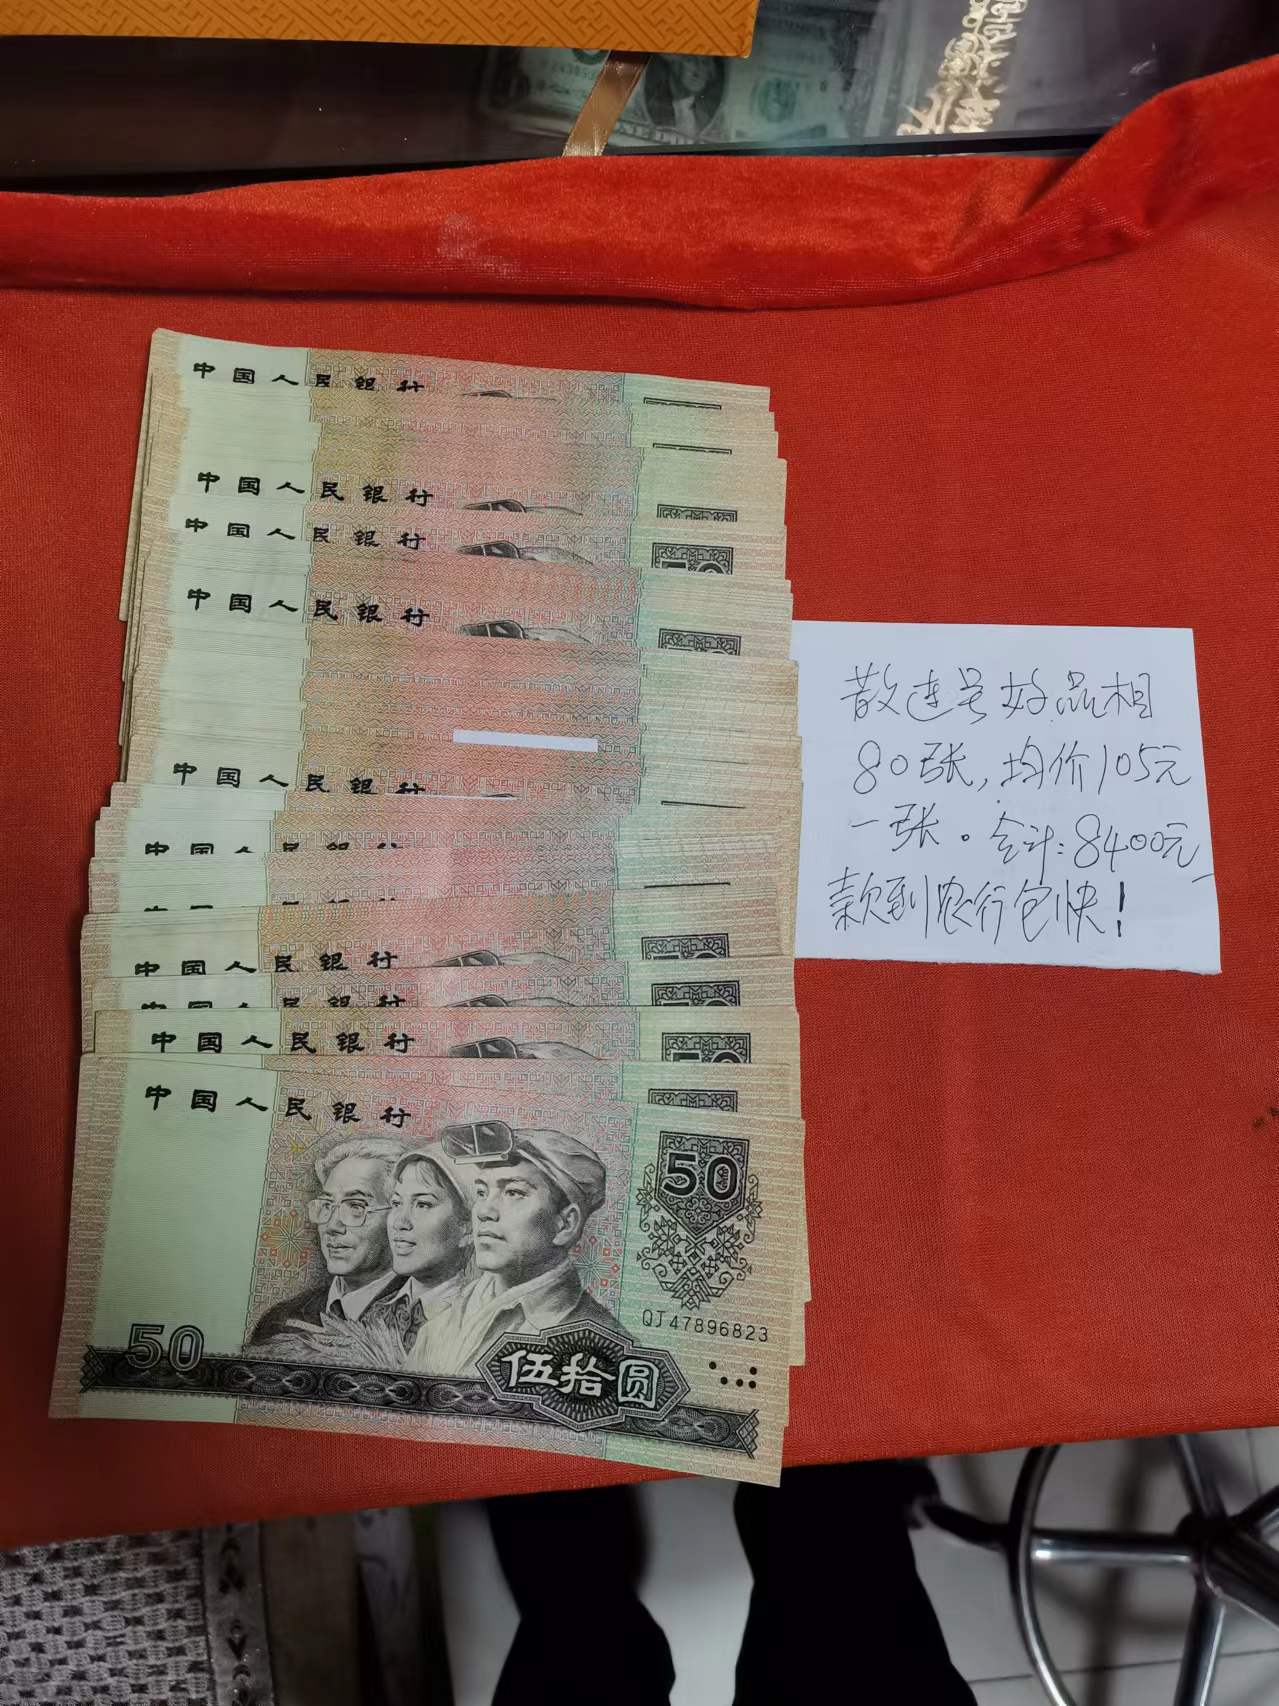 中国人民银行
中国人民银行
中国人民银行
50
中国人民银行
中国人民银行
中国人民银行
中国人民银行
50
中国人民银行
中国人民银行
50
中国人民银行
50
QJ47896823
50
伍拾圆
散连号好品相
80张,均价105元
一张。合计:8400元
款到农行包快!